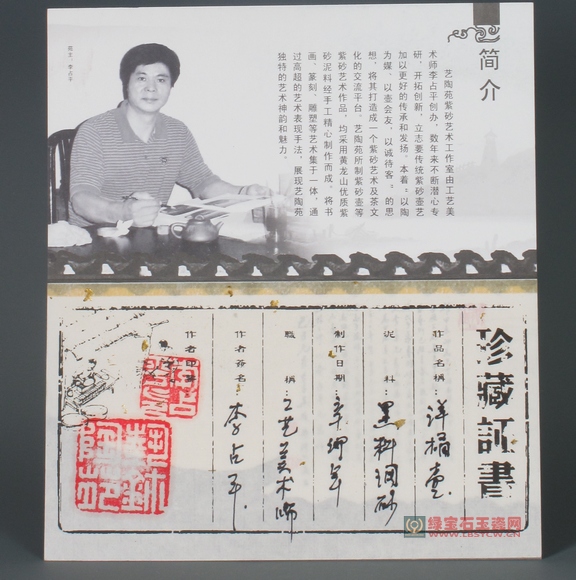 简介
艺陶苑紫砂艺术工作室由工艺美
术师李占平创办，数年来不断潜心专
研，开拓创新，立志要传统紫砂壶艺
加以更好的传承和发扬。本着“以陶
为媒、以壶会友，以诚待客。”的思
想，将其打造成一个紫砂艺术及茶文
化的交流平台。艺陶苑所制紫砂壶等
紫砂艺术作品，均采用黄龙山优质紫
砂泥料经手工精心制作而成，将书
画、篆刻、雕塑等艺术集于一体，通
过高超的艺术表现手法，展现艺陶苑
独特的艺术神韵和魅力。
苑主：李占平
珍藏証書
作品名稱：洋桶壶
泥料：黑料调砂
制作日期：辛卯年
職稱：工艺美术师
作者簽名：李占平
作者印章
绿宝石玉瓷网
www.LBSYCW.cn